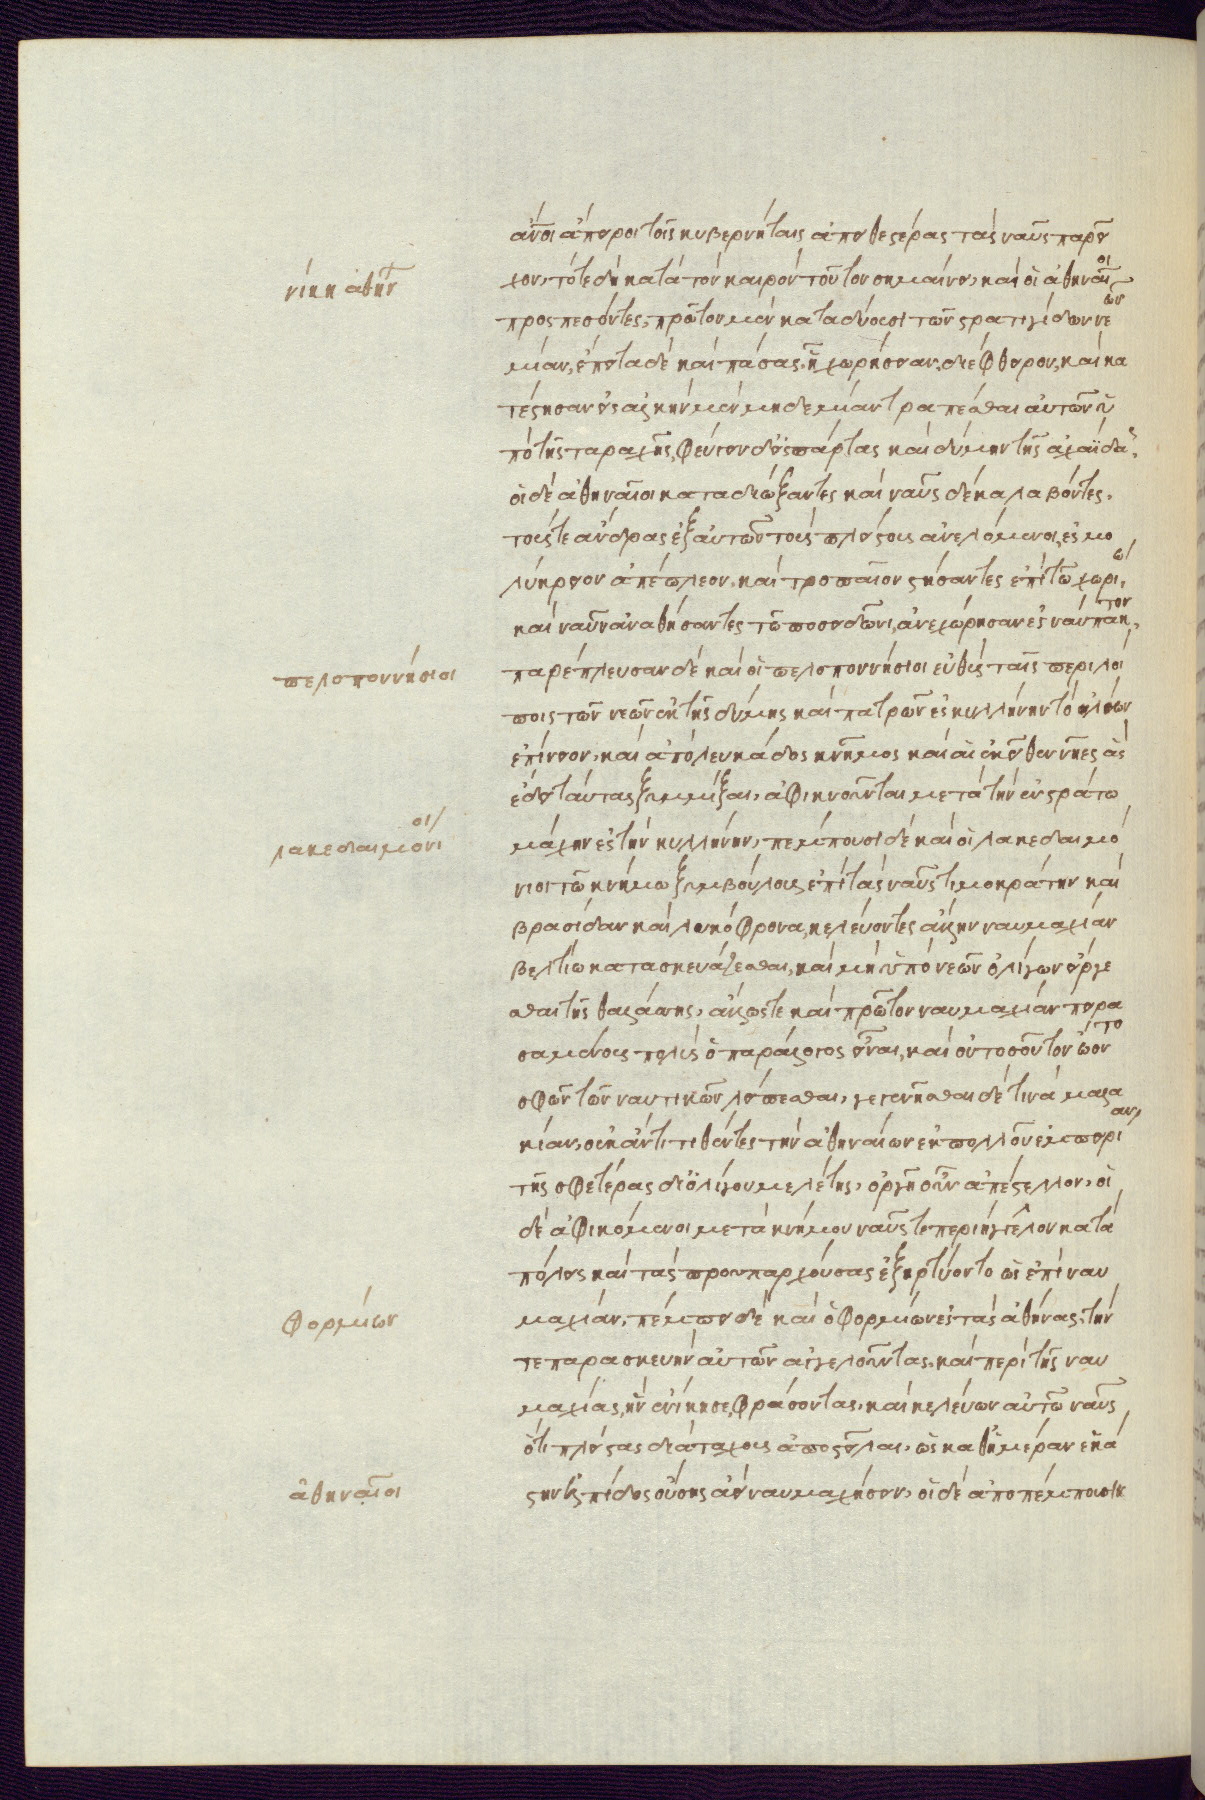 ἄνθρωποι ἄποροι τοῖς κυβερνήταις ἀπειθεστέρας τὰς ναῦς παρεῖ
χον, τότε δὴ κατὰ τὸν καιρὸν τοῦτον σημαίνει, καὶ οἱ ἀθηναῖοι
νίκη ἀθην
προσπεσόντες, πρῶτον μὲν καταδύουσι τῶν στρατηγίδων νεῶν
μίαν, ἔπειτα δὲ καὶ πάσας ᾗ χωρήσειαν, διέφθειρον, καὶ κα
τέστησαν ἐς ἀλκὴν μὲν μηδεμίαν τραπέσθαι αὐτῶν ὑ
πὸ τῆς ταραχῆς, φεύγειν δ' ἐς πάτρας καὶ δύμην τῆς ἀχαΐδας.
οἱ δὲ ἀθηναῖοι καταδιώξαντες καὶ ναῦς δέκα λαβόντες,
τούς τε ἄνδρας ἐξ αὐτῶν τοὺς πλείστους ἀνελόμενοι, ἐς μο
λύκρειον ἀπέπλεον, καὶ τροπαῖον στήσαντες ἐπὶ τῷ χωρίω,
καὶ ναῦν ἀναθήσαντες τῷ ποσειδῶνι, ἀνεχώρησαν ἐς ναύπακτον,
πελοποννήσιοι
παρέπλευσαν δὲ καὶ οἱ πελοποννήσιοι εὐθὺς ταῖς περιλοί
ποις τῶν νεῶν ἐκ τῆς δύμης καὶ πατρῶν ἐς κυλλήνην τὸ ἠλείων
ἐπίνειον, καὶ ἀπὸ λευκάδος κνῆμος καὶ αἱ ἐκεῖθεν νῆες ἃς
ἔδει ταύταις ξυμμίξαι, ἀφικνοῦνται μετὰ τὴν ἐν στράτω
μάχην ἐς τὴν κυλλήνην, πέμπουσι δὲ καὶ οἱ λακεδαιμό
λακεδαιμόνιοι
νιοι τῷ κνήμω ξυμβούλους ἐπὶ τὰς ναῦς τιμοκράτην καὶ
βρασίδαν καὶ λυκόφρονα, κελεύοντες ἄλλην ναυμαχίαν
βελτίω κατασκευάζεσθαι, καὶ μὴ ὑπὸ νεῶν ὀλίγων εἴργε
σθαι τῆς θαλάσσης, ἄλλως τε καὶ πρῶτον ναυμαχίαν πειρα
σαμένοις πολὺς ὁ παράλογος εἶναι, καὶ οὐ τοσοῦτον ὤοντο
σφῶν τῶν ναυτικῶν λείπεσθαι, γεγενῆσθαι δέ τινα μαλα
κίαν, οὐκ ἀντιτιθέντες τὴν ἀθηναίων ἐκ πολλοῦ ἐμπειρίαν,
τῆς σφετέρας δι' ὀλίγου μελέτης, ὀργῇ οὖν ἀπέστελλον, οἱ
δὲ ἀφικόμενοι μετὰ κνήμου ναῦς τε περιήγγελον κατὰ
πόλεις καὶ τὰς προυπαρχούσας ἐξηρτύοντο ὡς ἐπὶ ναυ
μαχίαν, πέμπει δὲ καὶ ὁ φορμίων ἐς τὰς ἀθήνας, τήν
φορμίων
τε παρασκευὴν αὐτῶν ἀγγελοῦντας, καὶ περὶ τῆς ναυ
μαχίας, ἣν ἐνίκησε, φράσοντας, καὶ κελεύων αὐτῷ ναῦς
ὅτι πλείστας διατάχους ἀποστεῖλαι, ὡς καθ' ἡμέραν ἑκά
στην ἐλπίδος οὔσης ἀεὶ ναυμαχήσειν, οἱ δὲ ἀποπέμπουσιν
ἀθηναῖοι